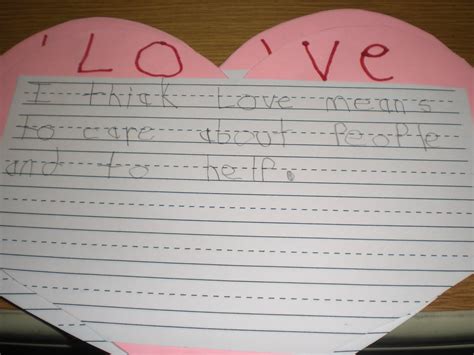 'LO 've
I thiak Love means
to care about People
and to help.